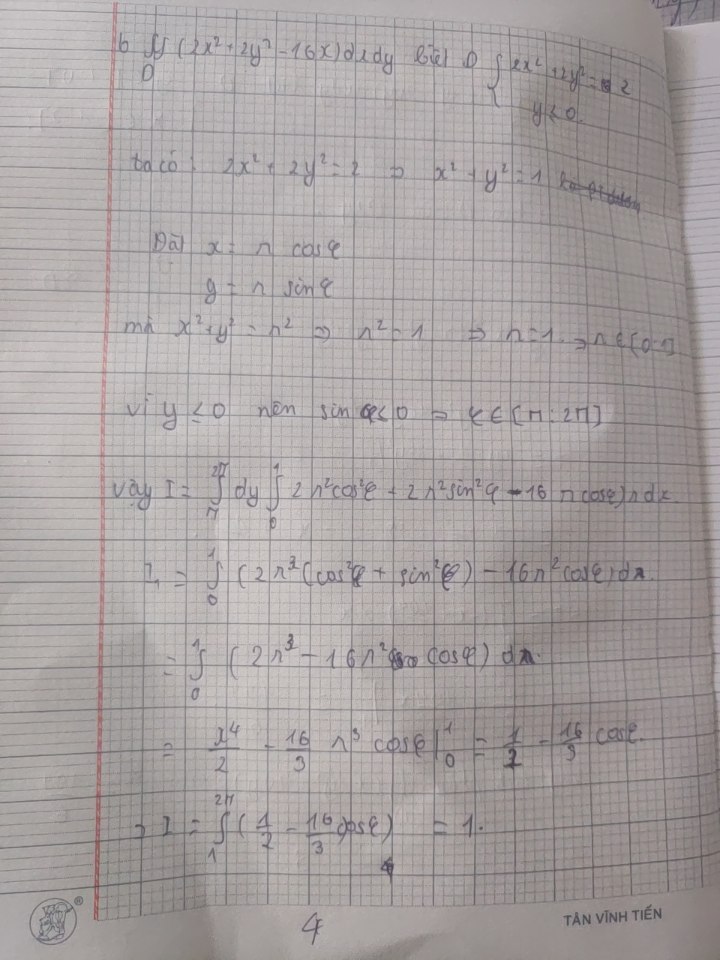 b ∬ (2x² + 2y² - 16x) dxdy biết D { 2x² + 2y² = 2
D y < 0
ta có: 2x² + 2y² = 2 ⇒ x² + y² = 1
Đặt x = r cosφ
y = r sinφ
mà x² + y² = r² ⇒ r² = 1 ⇒ r = 1 ⇒ r ∈ [0;1]
vì y ≤ 0 nên sin φ < 0 ⇒ φ ∈ [π; 2π]
vậy I = ∫_π^{2π} dy ∫_0^1 2r²cos²φ + 2r²sin²φ - 16 r cosφ) r dx.
I₁ = ∫_0^1 (2r³(cos²φ + sin²φ) - 16r²cosφ) dr.
= ∫_0^1 (2r³ - 16r² cosφ) dr.
= x⁴/2 - 16/3 r³ cosφ |_0^1 = 1/2 - 16/3 cosφ.
⇒ I = ∫_1^{2π} (1/2 - 16/3 cosφ) = 1.
4
®
TÂN VĨNH TIẾN